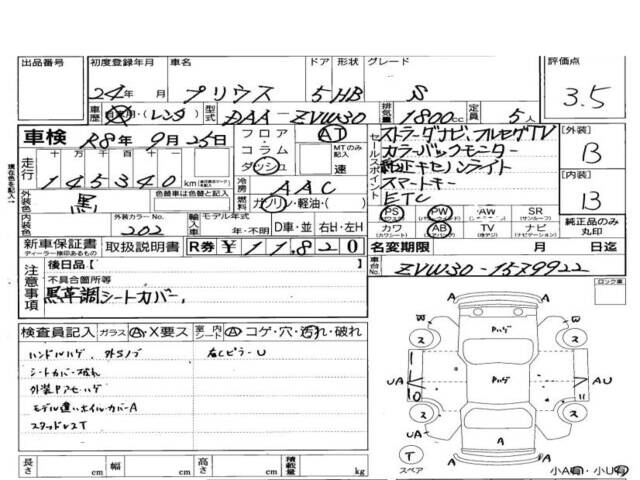 出品番号 初度登録年月 車名 ドア 形状 グレード 評価点
24年 月 プリウス 5 HB S 3.5
車歴 自家用・(レンタ) 型式 DAA-ZVW30 排気量 1800cc 定員 5人
車検 R8年9月25日 フロア・コラム ダッシュ AT MTのみ記入 速
セールスポイント ストラーダナビ、フルセグTV
カラーバックモニター
純正キセノンライト
スマートキー
ETC
[外装] B
[内装] B
走行 十万 万 千 百 十 一
145340 km
現在色を記入
外装色 黒 色替車は色替と記入
冷房 AAC
燃料 ガソリン・軽油・( )
内装色 外装カラーNo. 202 輸入車 モデル年式 年・不明 D車・並 右H・左H
PS PW AW SR
カワ AB TV ナビ
純正品のみ丸印
新車保証書 取扱説明書 R券 ¥11,820
ディーラー検印あるもの
名変期限 月 日迄
車台No. ZVW30-1579922
注意事項 後日品[ ]
不具合箇所等
黒革調シートカバー.
ロック車
検査員記入 ガラス A X要ス 室内シート A コゲ・穴・汚れ・破れ
ハンドルハゲ、外Sノブ 右CピラーU
シートカバー破れ
外装Pアセハゲ
モデル違いホイルカバーA
スタッドレスT
A A A
Pハゲ
ス ス
UA Pハゲ AU
ス ス
UA A
T スペア A A
小A有・小U有
長さ cm 幅 cm 高さ cm 積載量 kg